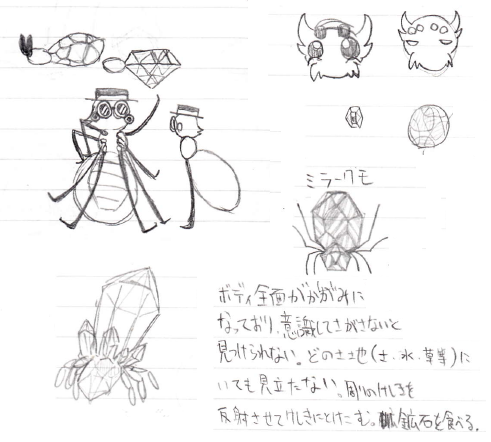 ミラークモ
ボディ全面がかがみに
なっており、意識してさがさないと
見つけられない。どの土地(土・水・草等)に
いても見立たない。のけしきを
反射させてけしきにとけこむ。鉱石を食べる。